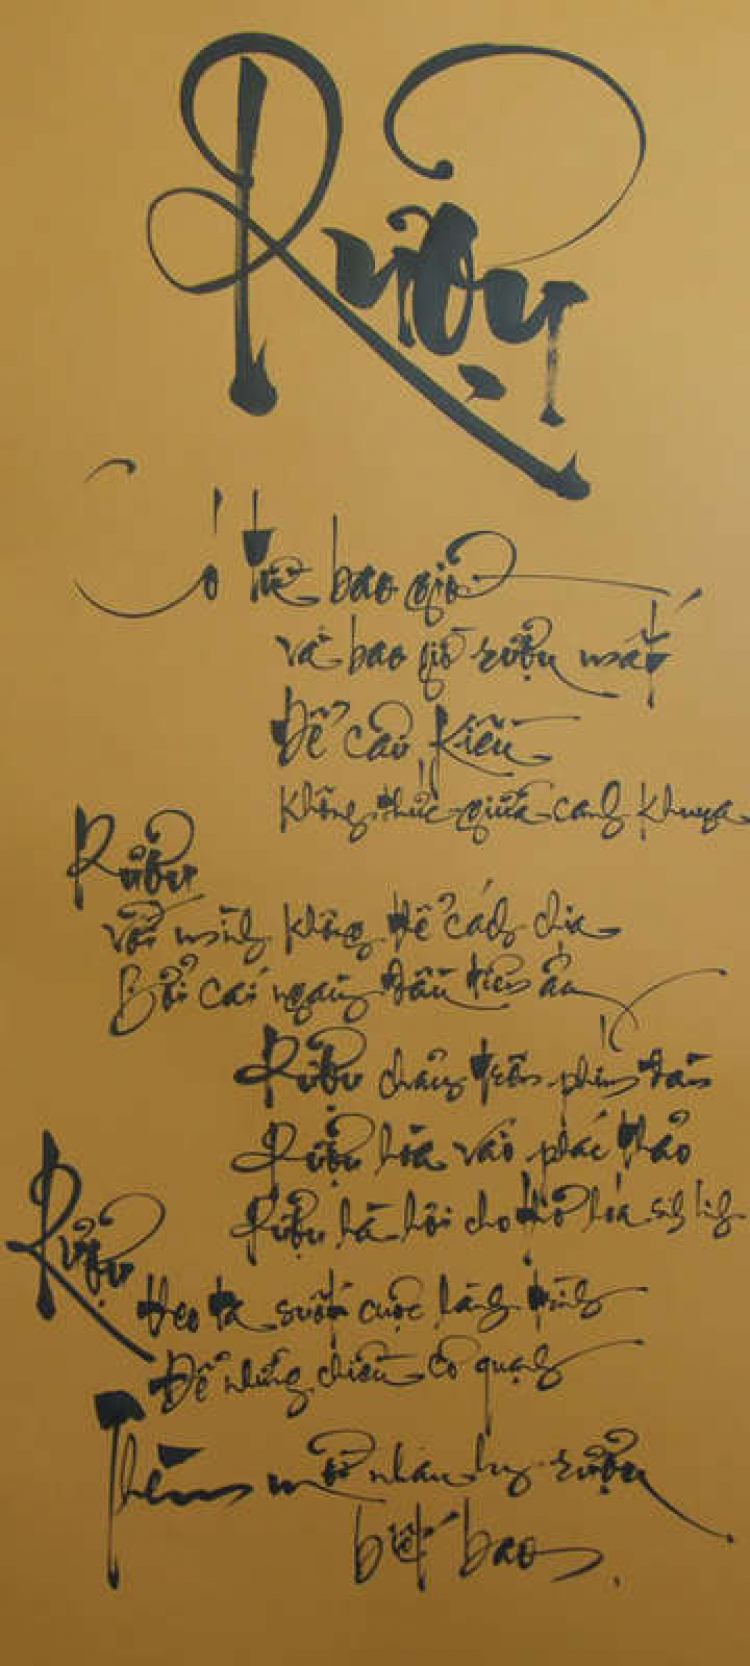 Rượu
Có từ bao giờ
và bao giờ rượu mất
Để cầu Kiều
không thức giữa canh khuya
Rượu
với mình không thể cách chia
Bởi cái ngàng đầu tiên ấy
Rượu chảy trên phím đàn
Rượu hòa vào phác thảo
Rượu hà hơi cho thơ hóa sinh linh
Rượu
theo ta suốt cuộc hành trình
Để những chiều cô quạnh
Thèm một nhân hy rượu
biết bao